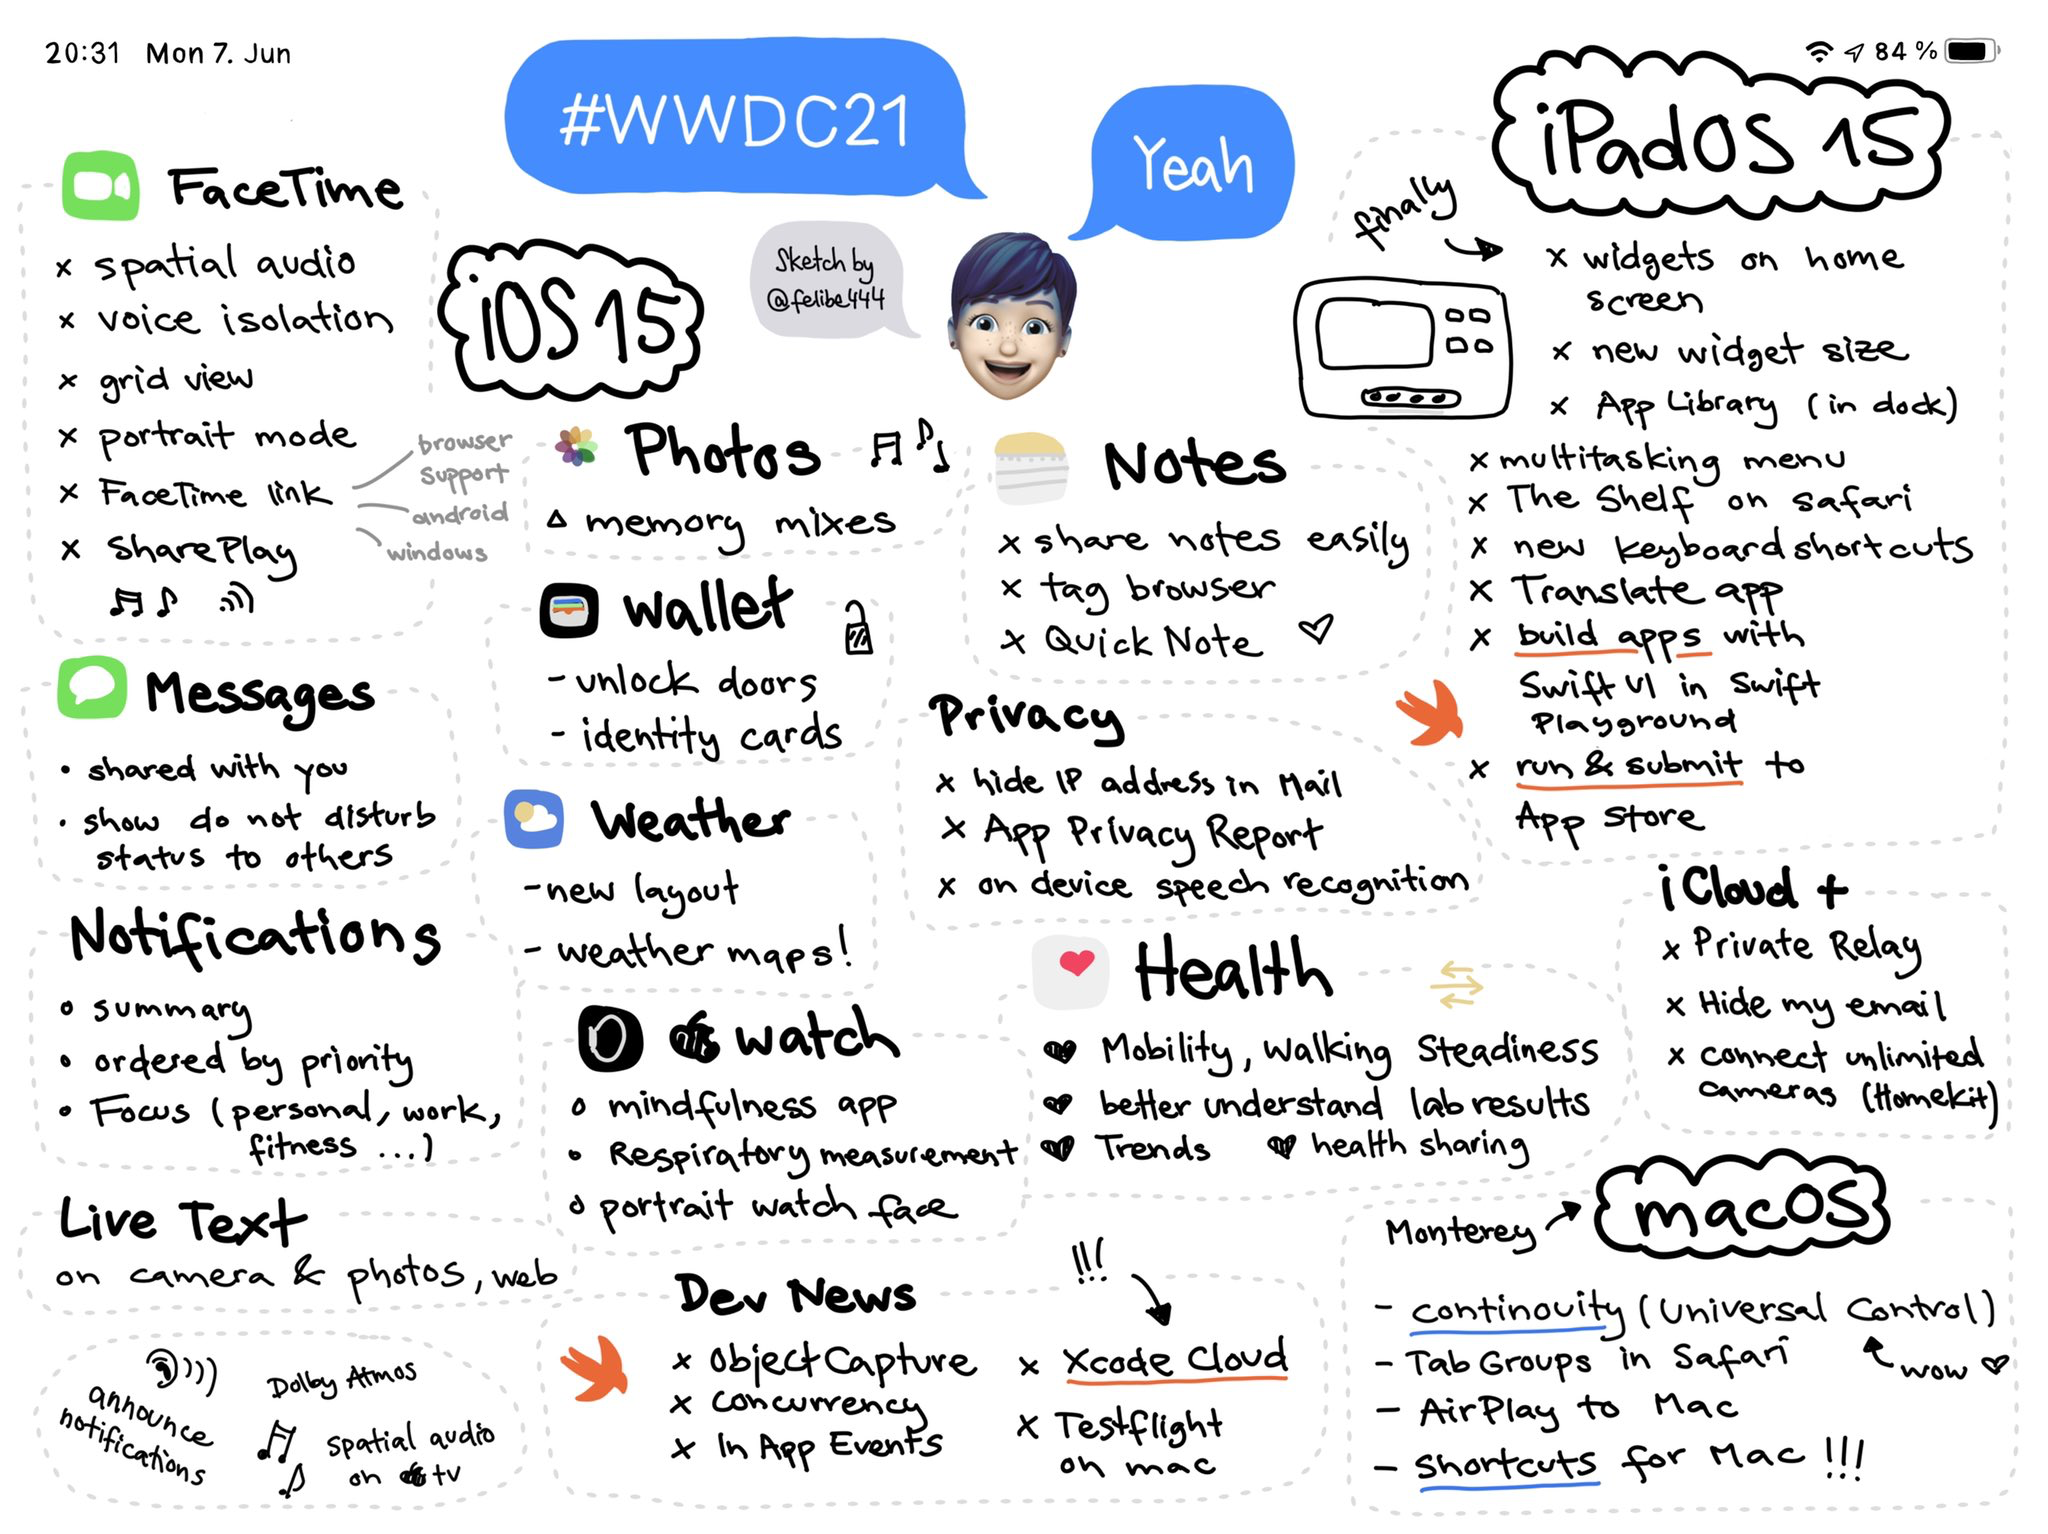 20:31 Mon 7. Jun
84 %
#WWDC21
Yeah
Sketch by
@felibe444
iOS 15
FaceTime
x spatial audio
x voice isolation
x grid view
x portrait mode
x FaceTime link
browser
support
android
windows
x SharePlay
Messages
• shared with you
• show do not disturb
status to others
Notifications
o summary
o ordered by priority
o Focus (personal, work,
fitness ...)
Live Text
on camera & photos, web
announce
notifications
Dolby Atmos
spatial audio
on tv
Photos
△ memory mixes
Wallet
- unlock doors
- identity cards
Weather
- new layout
- weather maps!
watch
o mindfulness app
o Respiratory measurement
o portrait watch face
Notes
x share notes easily
x tag browser
x Quick Note ♡
Privacy
x hide IP address in Mail
x App Privacy Report
x on device speech recognition
Health
♥ Mobility, Walking Steadiness
♥ better understand lab results
♥ Trends ♥ health sharing
Dev News
x Object Capture
x Concurrency
x In App Events
!!!
x Xcode Cloud
x Testflight
on mac
iPadOS 15
finally
x widgets on home
screen
x new widget size
x App Library (in dock)
x multitasking menu
x The Shelf on Safari
x new keyboard shortcuts
x Translate app
x build apps with
Swift UI in Swift
Playground
x run & submit to
App Store
iCloud +
x Private Relay
x Hide my email
x connect unlimited
cameras (Homekit)
macOS
Monterey
- continouity (Universal Control)
wow ♡
- Tab Groups in Safari
- AirPlay to Mac
- Shortcuts for Mac !!!